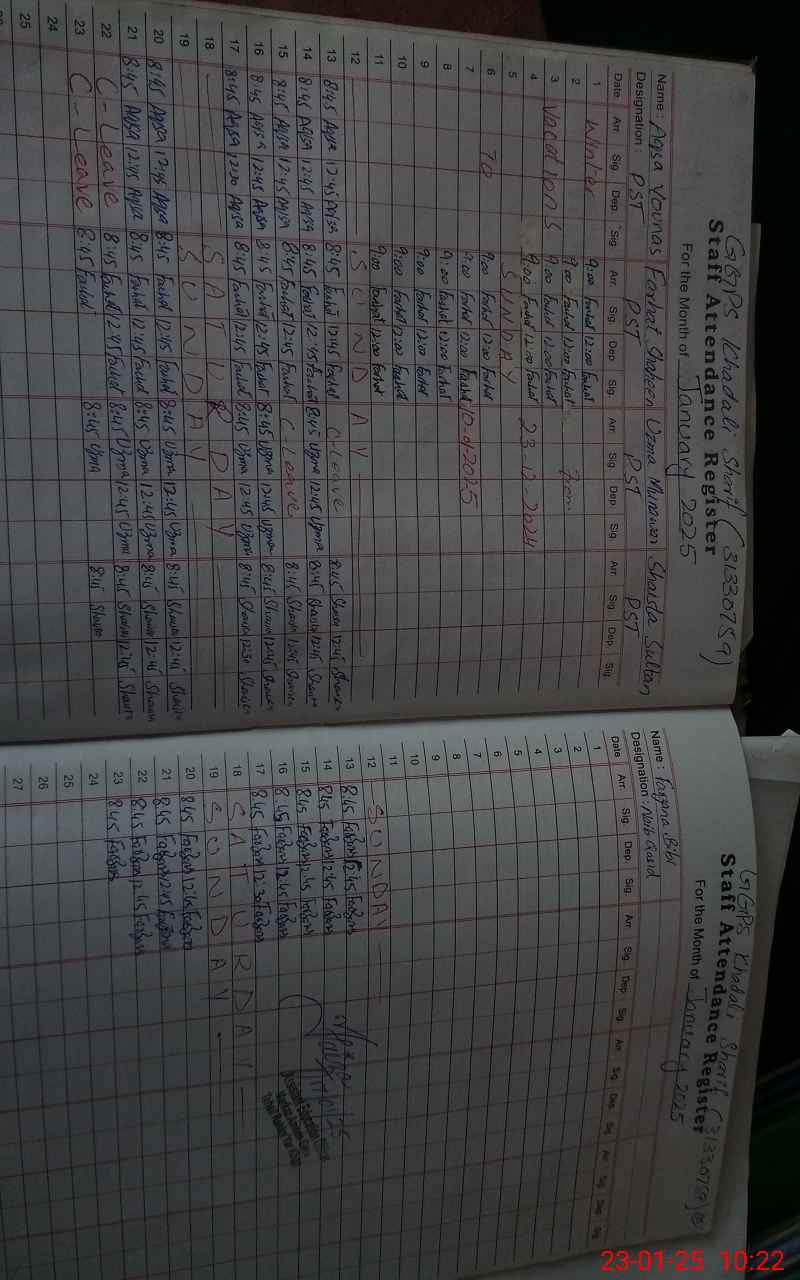 GGPS Khadali Sharif (31330759)
Staff Attendance Register
For the Month of January 2025
Name: Aqsa Younas Farhat Shaheen Uzma Munawar Shaista Sultan
Designation: PST PST PST PST
Date Arr. Sig. Dep. Sig. Arr. Sig. Dep. Sig. Arr. Sig. Dep. Sig. Arr. Sig. Dep. Sig.
1 Winter 9:00 Farhat 12:00 Farhat
2 9:00 Farhat 12:00 Farhat From
3 Vacations 9:00 Farhat 12:00 Farhat
4 9:00 Farhat 12:00 Farhat 23-12-2024
5 SUNDAY
6 To 9:00 Farhat 12:00 Farhat
7 9:00 Farhat 12:00 Farhat 10-01-2025
8 9:00 Farhat 12:00 Farhat
9 9:00 Farhat 12:00 Farhat
10 9:00 Farhat 12:00 Farhat
11 9:00 Farhat 12:00 Farhat
12 SUNDAY
13 8:45 Aqsa 12:45 Aqsa 8:45 Farhat 12:45 Farhat C-Leave 8:45 Shaista 12:45 Shaista
14 8:45 Aqsa 12:45 Aqsa 8:45 Farhat 12:45 Farhat 8:45 Uzma 12:45 Uzma 8:45 Shaista 12:45 Shaista
15 8:45 Aqsa 12:45 Aqsa 8:45 Farhat 12:45 Farhat C-Leave 8:45 Shaista 12:45 Shaista
16 8:45 Aqsa 12:45 Aqsa 8:45 Farhat 12:45 Farhat 8:45 Uzma 12:45 Uzma 8:45 Shaista 12:45 Shaista
17 8:45 Aqsa 12:30 Aqsa 8:45 Farhat 12:45 Farhat 8:45 Uzma 12:45 Uzma 8:45 Shaista 12:30 Shaista
18 SATURDAY
19 SUNDAY
20 8:45 Aqsa 12:45 Aqsa 8:45 Farhat 12:45 Farhat 8:45 Uzma 12:45 Uzma 8:45 Shaista 12:45 Shaista
21 8:45 Aqsa 12:45 Aqsa 8:45 Farhat 12:45 Farhat 8:45 Uzma 12:45 Uzma 8:45 Shaista 12:45 Shaista
22 C-Leave 8:45 Farhat 12:45 Farhat 8:45 Uzma 12:45 Uzma 8:45 Shaista 12:45 Shaista
23 C-Leave 8:45 Farhat 8:45 Uzma 8:45 Shaista
24
25
GGPS Khadali Sharif (31330759)
Staff Attendance Register
For the Month of January 2025
Name: Farzana Bibi
Designation: Naib Qasid
Date Arr. Sig. Dep. Sig. Arr. Sig. Dep. Sig. Arr. Sig. Dep. Sig. Arr. Sig. Dep. Sig.
1
2
3
4
5
6
7
8
9
10
11
12 SUNDAY
13 8:45 Farzana 12:45 Farzana
14 8:45 Farzana 12:45 Farzana
15 8:45 Farzana 12:45 Farzana
16 8:45 Farzana 12:45 Farzana
17 8:45 Farzana 12:30 Farzana
18 SATURDAY
19 SUNDAY
20 8:45 Farzana 12:45 Farzana
21 8:45 Farzana 12:45 Farzana
22 8:45 Farzana 12:45 Farzana
23 8:45 Farzana
24
25
26
27
23-01-25 10:22